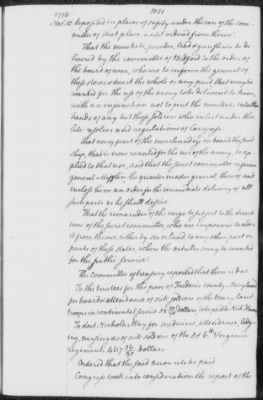 1776 1021
Nov. 25 deposited in places of safety under the care of the com-
mittee of that place, until ordered from thence:
That the muskets, powder, lead & gun flints be de-
livered by the committee of Bedford to the order of
the board of war, who are to inform the general of
these stores & direct the whole or any part that may be
wanted for the use of the army to be delivered to him,
with an injunction not to put the muskets into the
hands of any but those soldiers who enlist under the
late resolves and regulations of Congress.
That every part of the merchandize on board the said
ship, that is now wanted for the use of the army, be ap-
plied to that use, and that the secret committee inform
general Mifflin the quarter master general thereof, and
enclose him an order for the immediate delivery of all
such parts as he shall desire:
That the remainder of the cargo be subject to the direct-
ion of the secret committee, who are impowered to sell
it from thence, either by sea or land, to any other part or
parts of these states, where the articles may be wanted
for the public service.
The committee of treasury reported that there is due
To the trustees for the poor of Frederic county, Maryland
for boards attendance of sick soldiers of the Maryland
troops in continental service, dollars, to be paid to
To doct. Nicholas Way for medicines, attendance, lodg-
ing, nursing &c of sick soldiers of the 5 & 6th Virginia
regiments, dollars
Ordered that the said accounts be paid.
Congress took into consideration the report of the